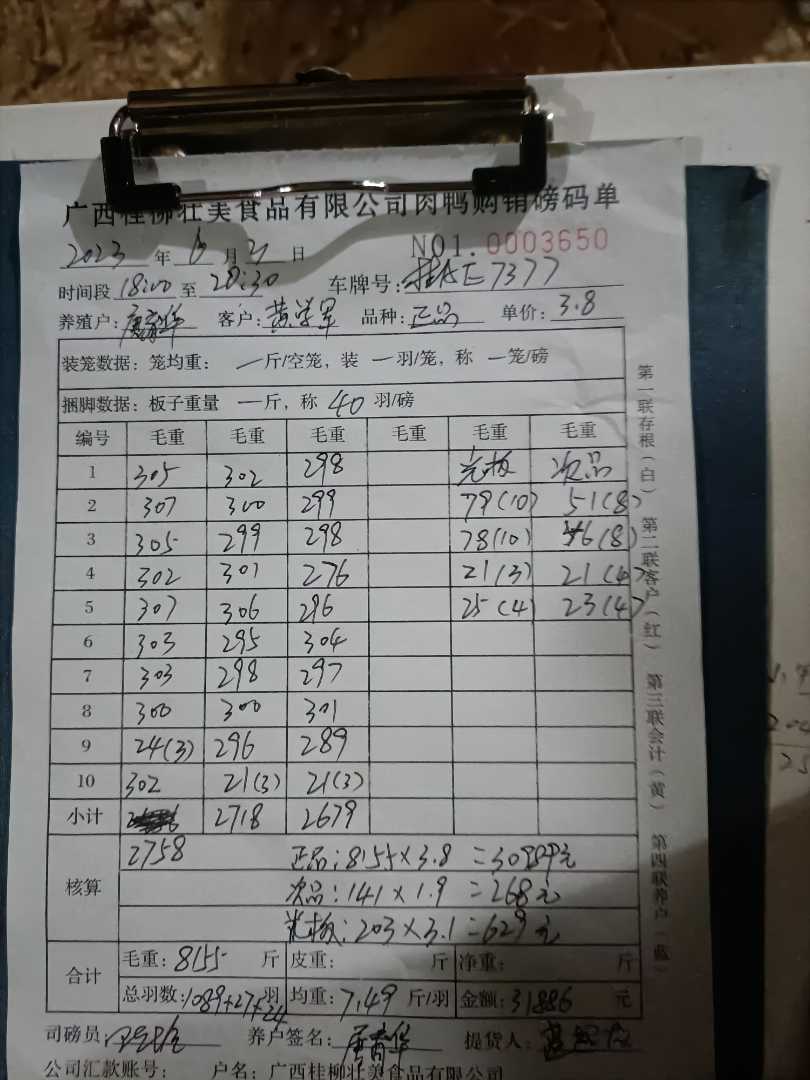 广西桂柳壮美食品有限公司肉鸭购销磅码单
2023 年 6 月 21 日 NO1. 0003650
时间段 18:00 至 20:30 车牌号: 桂AE7377
养殖户: 客户: 黄学军 品种: 正品 单价: 3.8
装笼数据: 笼均重: 一斤/空笼, 装 一羽/笼, 称 一笼/磅
捆脚数据: 板子重量 一斤, 称 40 羽/磅
编号 毛重 毛重 毛重 毛重 毛重 毛重
1 305 302 298 光板 次品
2 307 300 299 79(10) 51(8)
3 305 299 298 78(10) 46(8)
4 302 301 276 21(3) 21(4)
5 307 306 296 25(4) 23(4)
6 303 295 304
7 303 298 297
8 300 300 301
9 24(3) 296 289
10 302 21(3) 21(3)
小计 2718 2679
2758 正品: 8155×3.8=30989元
核算 次品: 141×1.9=268元
光板: 203×3.1=629元
合计 毛重: 8155 斤 皮重: 斤 净重: 斤
总羽数: 1089+27+24 羽 均重: 7.49 斤/羽 金额: 31886 元
司磅员 养户签名: 提货人:
公司汇款账号: 户名: 广西桂柳壮美食品有限公司
第一联存根(白) 第二联客户(红) 第三联会计(黄) 第四联养户(蓝)